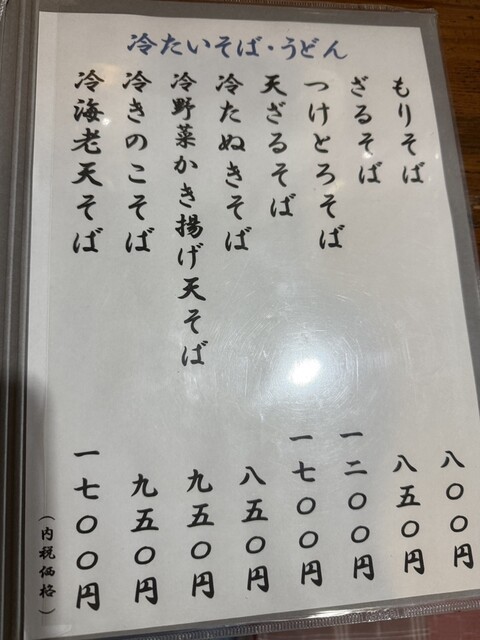 冷たいそば・うどん
もりそば 八〇〇円
ざるそば 八五〇円
つけとろそば 一二〇〇円
天ざるそば 一七〇〇円
冷たぬきそば 八五〇円
冷野菜かき揚げ天そば 九五〇円
冷きのこそば 九五〇円
冷海老天そば 一七〇〇円
(内税価格)